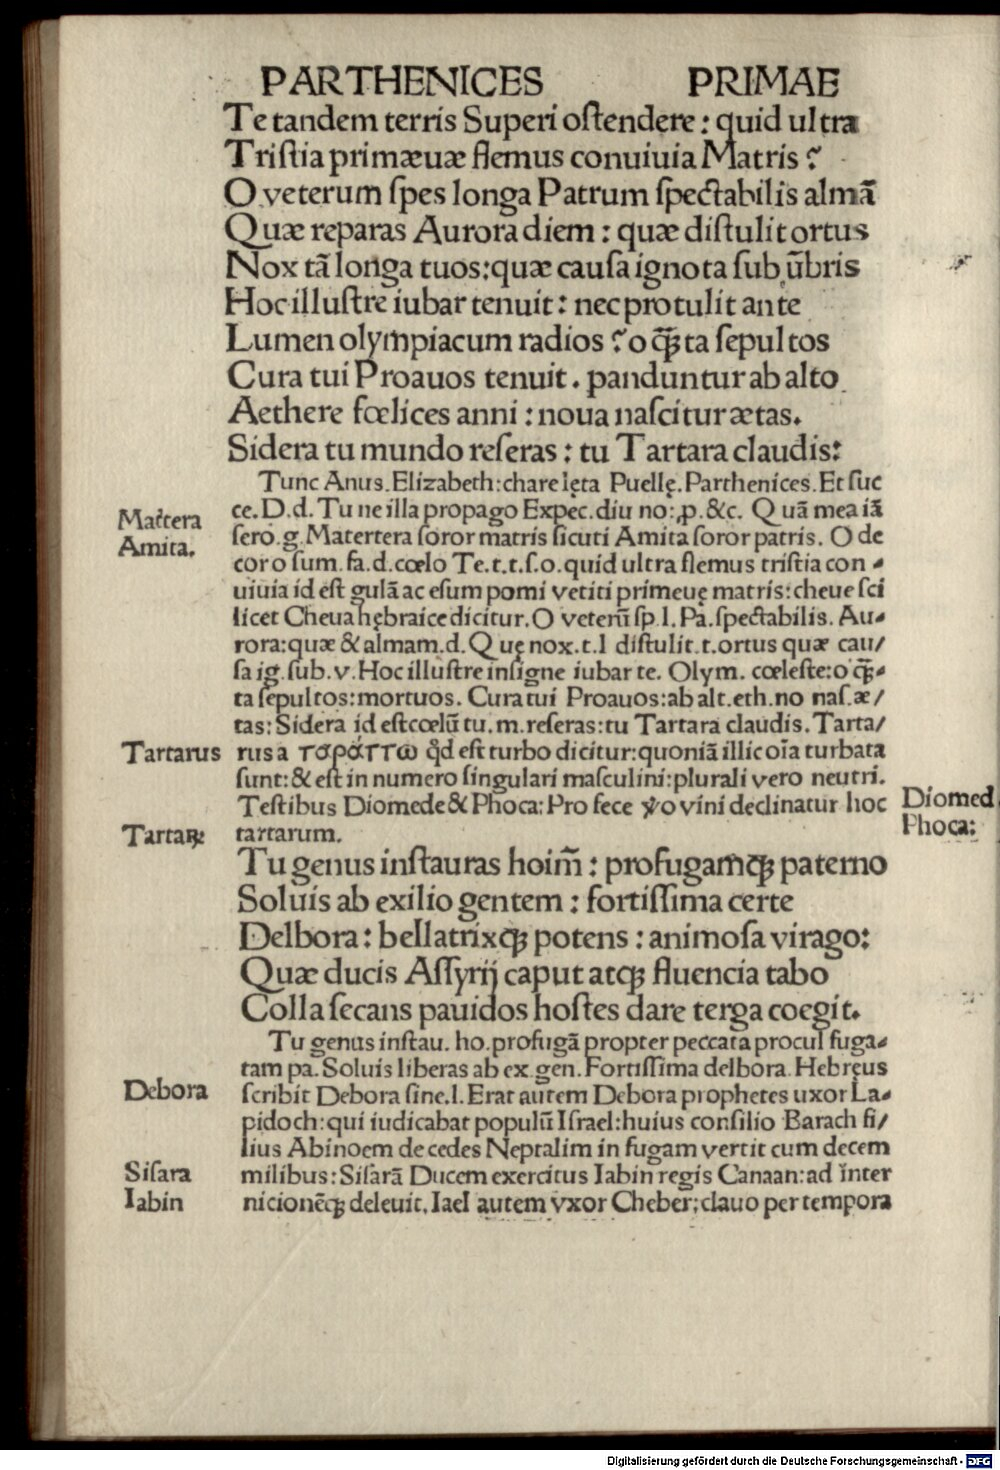 PARTHENICES PRIMAE
Te tandem terris Superi oſtendere : quid ultra
Triſtia primæuæ flemus conuiuia Matris ?
O veterum ſpes longa Patrum ſpectabilis almā
Quæ reparas Aurora diem : quæ diſtulit ortus
Nox tā longa tuos : quæ cauſa ignota ſub ūbris
Hoc illuſtre iubar tenuit : nec protulit ante
Lumen olympiacum radios ? o ꝗ̃ꝫ ta ſepultos
Cura tui Proauos tenuit . panduntur ab alto
Aethere fœlices anni : noua naſcitur ætas.
Sidera tu mundo reſeras : tu Tartara claudis:
Tunc Anus . Elizabeth: chare lęta Puellę . Parthenices . Et ſuc
ce. D. d. Tu ne illa propago Expec. diu no:, ꝓ. &c. Quā mea iā
Mat̄tera
Amita.
ſero . g. Matertera ſoror matris ſicuti Amita ſoror patris. O de
cor o ſum. fa. d. cœlo Te. t. t. ſ. o. quid ultra flemus triſtia con-
uiuia id eſt gulā ac eſum pomi vetiti primeuę matris: cheue ſci
licet Cheua hębraice dicitur. O veterū ſp. l. Pa. ſpectabilis. Au-
rora: quæ & almam. d. Quę nox. t. l diſtulit. t. ortus quæ cau/
ſa ig. ſub. v. Hoc illuſtre inſigne iubar te. Olym. cœleſte: o ꝗ̃ꝫ-
ta ſepultos: mortuos. Cura tui Proauos: ab alt. eth. no naſ. æ/
tas: Sidera id eſt cœlū tu. m. reſeras: tu Tartara claudis. Tarta/
Tartarus rus a ταράττω ꝙd eſt turbo dicitur: quoniā illic oīa turbata
ſunt: & eſt in numero ſingulari maſculini: plurali vero neutri.
Teſtibus Diomede & Phoca: Pro fece ꝟo vini declinatur hoc
Diomed
Phoca:
Tartaꝝ tartarum.
Tu genus inſtauras hoim̄ : profugamꝗꝫ paterno
Soluis ab exilio gentem : fortiſſima certe
Delbora : bellatrixꝗꝫ potens : animoſa virago:
Quæ ducis Aſſyrij caput atꝗꝫ fluencia tabo
Colla ſecans pauidos hoſtes dare terga coegit.
Tu genus inſtau. ho. profugā propter peccata procul fuga-
tam pa. Soluis liberas ab ex. gen. Fortiſſima delbora. Hebręus
Debora ſcribit Debora ſine. l. Erat autem Debora prophetes uxor La-
pidoch: qui iudicabat populū Iſrael: huius conſilio Barach fi/
lius Abinoem de cedes Neptalim in fugam vertit cum decem
Siſara milibus: Siſarā Ducem exercitus Iabin regis Canaan: ad inter
Iabin nicionēꝗꝫ deleuit. Iael autem vxor Cheber; clauo per tempora
Digitalisierung gefördert durch die Deutsche Forschungsgemeinschaft - DFG